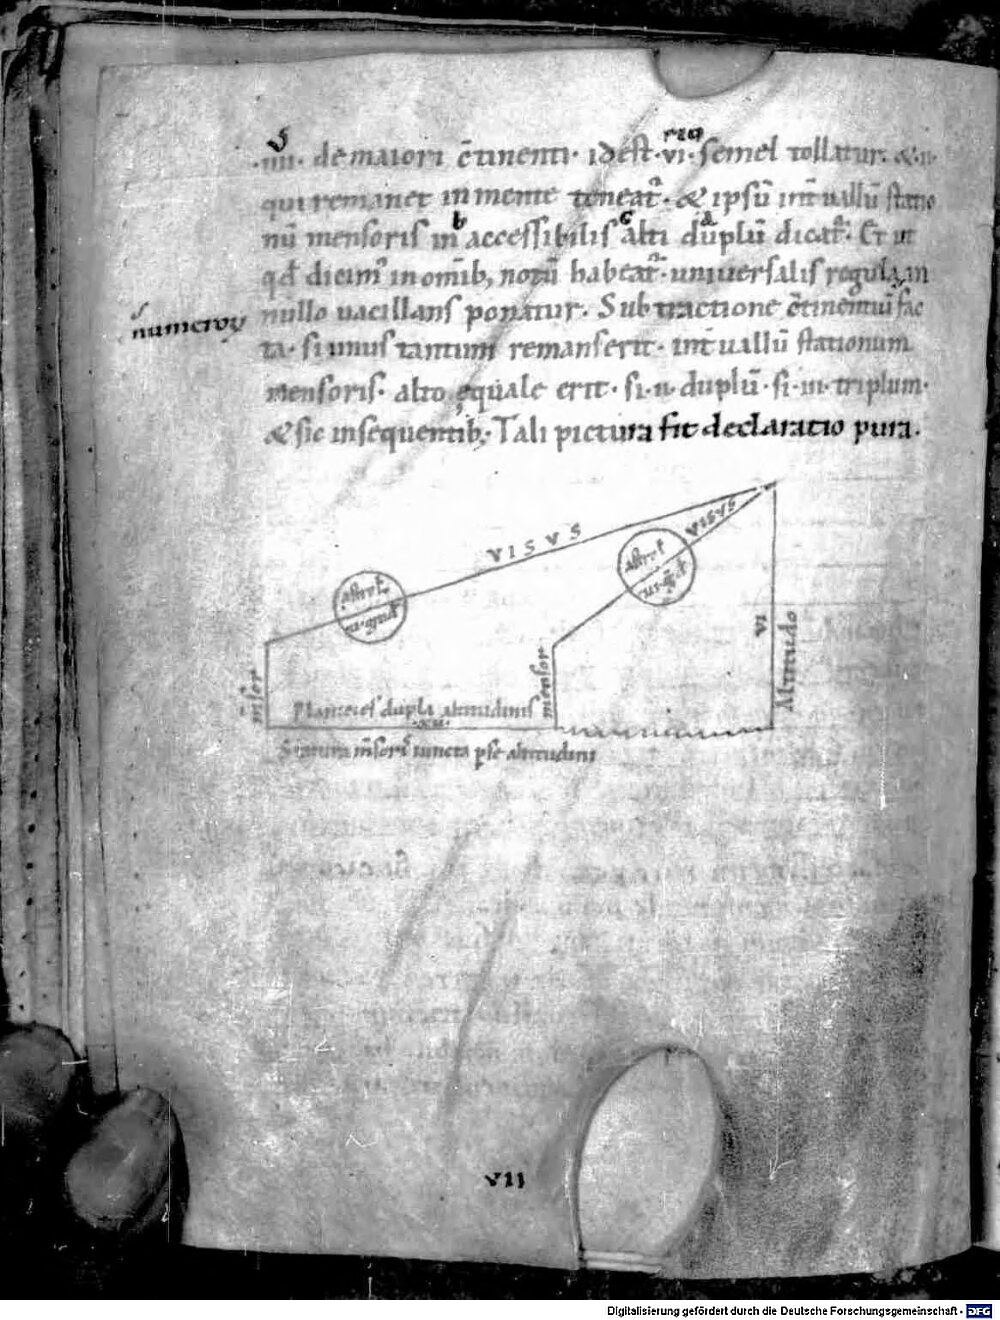 .iiii. de maiori c̄tinenti. id est .vi. semel tollatur. & .ii.
qui remanet in mente teneat᷑. & ipsū int̄uallū statio
nū mensoris inaccessibilis alti duplū dicat᷑. Et ut
qd̄ dicim᷒ in omib; notū habeat᷑. uniuersalis regula in
nullo uacillans ponatur. Subtractione c̄tinentiū fac
numeroꝝ
ta. si unus tantum remanserit. int̄uallū stationum
mensoris. alto ęquale erit. si .ii. duplū. si .iii. triplum.
& sic in sequentib; Tali pictura fit declaratio pura.
VISVS
VISVS
astrol
astrol
mensor
vi
Altitudo
Planicies dupla altitudinis
.xii.
Statura iuncta altitudini
VII
Digitalisierung gefördert durch die Deutsche Forschungsgemeinschaft - DFG